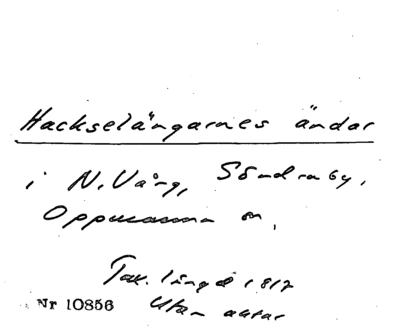 Hackselängarnes ändar
i N. Vång, Söndraby,
Oppmanna sn,
Tax. längd 1812
Nr 10856 Utan aktar